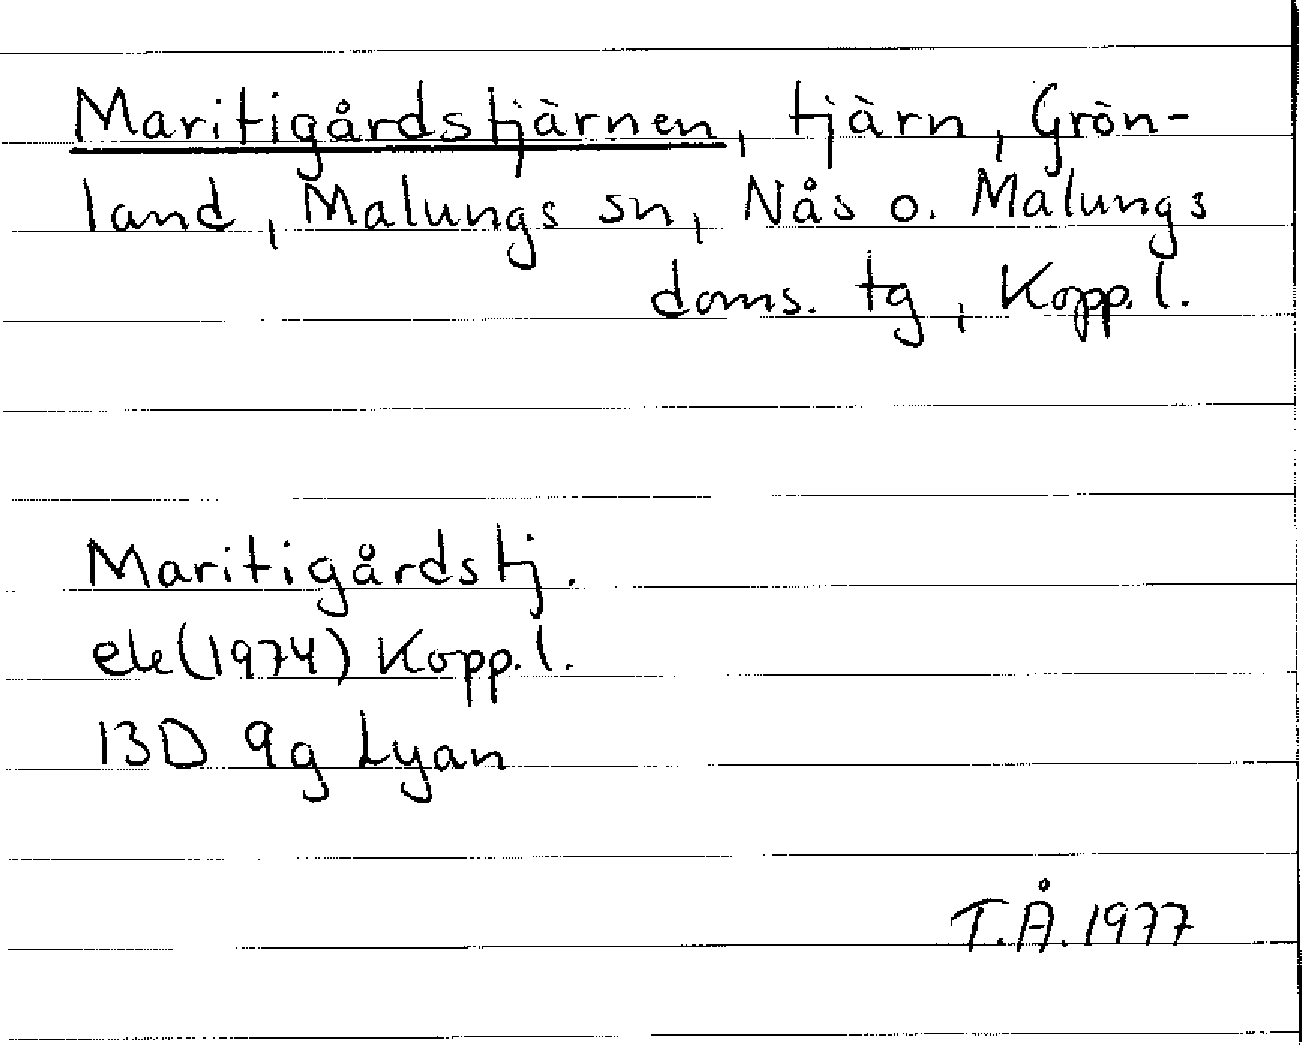 Maritigårdstjärnen, tjärn, Grön-
land, Malungs sn, Nås o. Malungs
doms. tg, Kopp. l.
Maritigårdstj.
ek (1974) Kopp. l.
13D 9g Lyan
T.Å. 1977